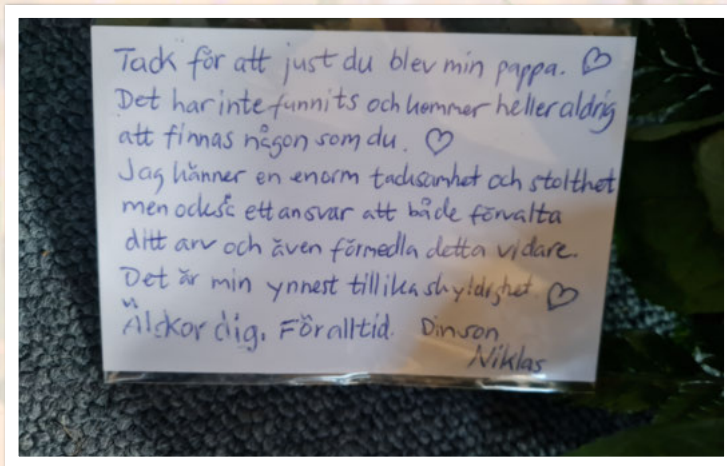 Tack för att just du blev min pappa. ♡
Det har inte funnits och kommer heller aldrig
att finnas någon som du. ♡
Jag känner en enorm tacksamhet och stolthet
men också ett ansvar att både förvalta
ditt arv och även förmedla detta vidare.
Det är min ynnest tillika skyldighet. ♡
Älskar dig. För alltid. Din son
Niklas